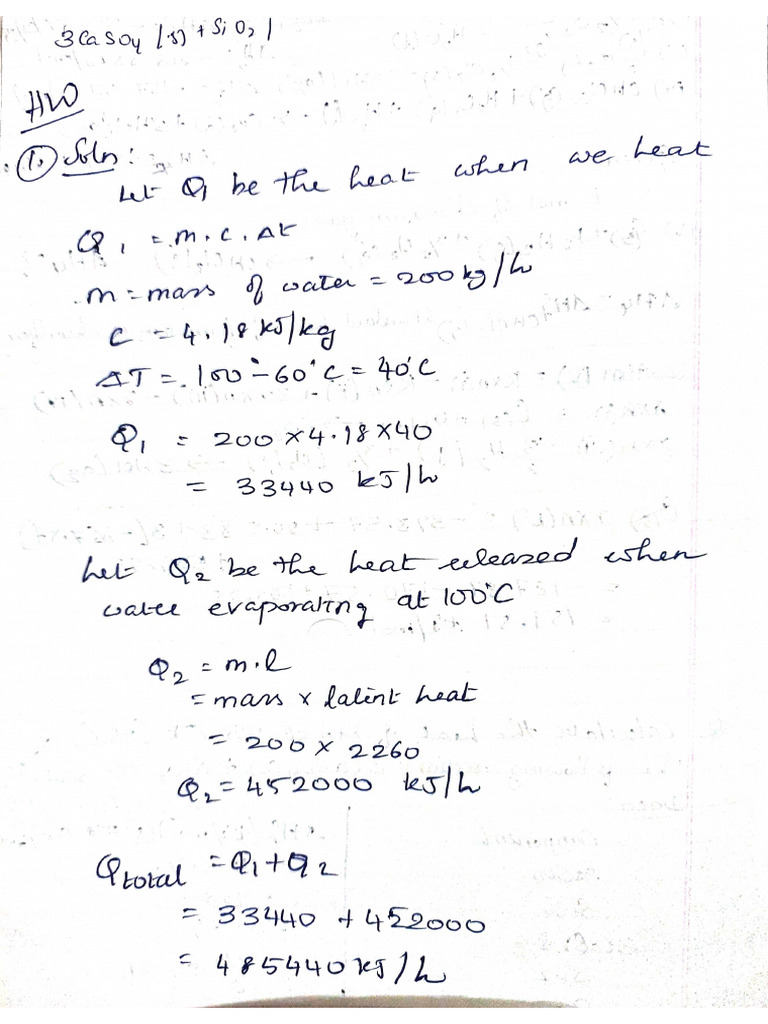 3CaSO4 (s) + SiO2 |
HW
1. Soln:
Let Q1 be the heat when we heat
Q1 = m.c.Δt
m = mass of water = 200 kg/h
C = 4.18 kJ/kg
ΔT = 100° - 60°C = 40°C
Q1 = 200 × 4.18 × 40
= 33440 kJ/h
Let Q2 be the heat released when
water evaporating at 100°C
Q2 = m.l
= mass × latint heat
= 200 × 2260
Q2 = 452000 kJ/h
Qtotal = Q1 + Q2
= 33440 + 452000
= 485440 kJ/h